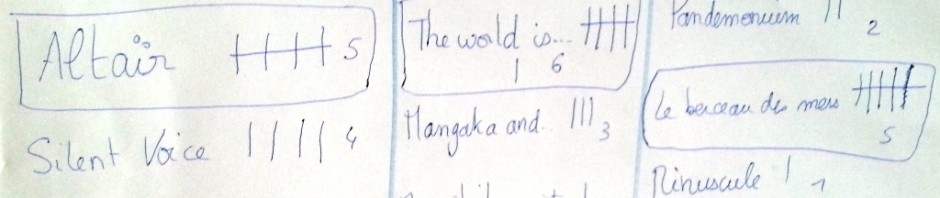 Altaïr 5
Silent Voice |||| 4
The world is...
| 6
Mangaka and.. ||| 3
Pandemonium || 2
Le berceau des mers
5
Minuscule | 1